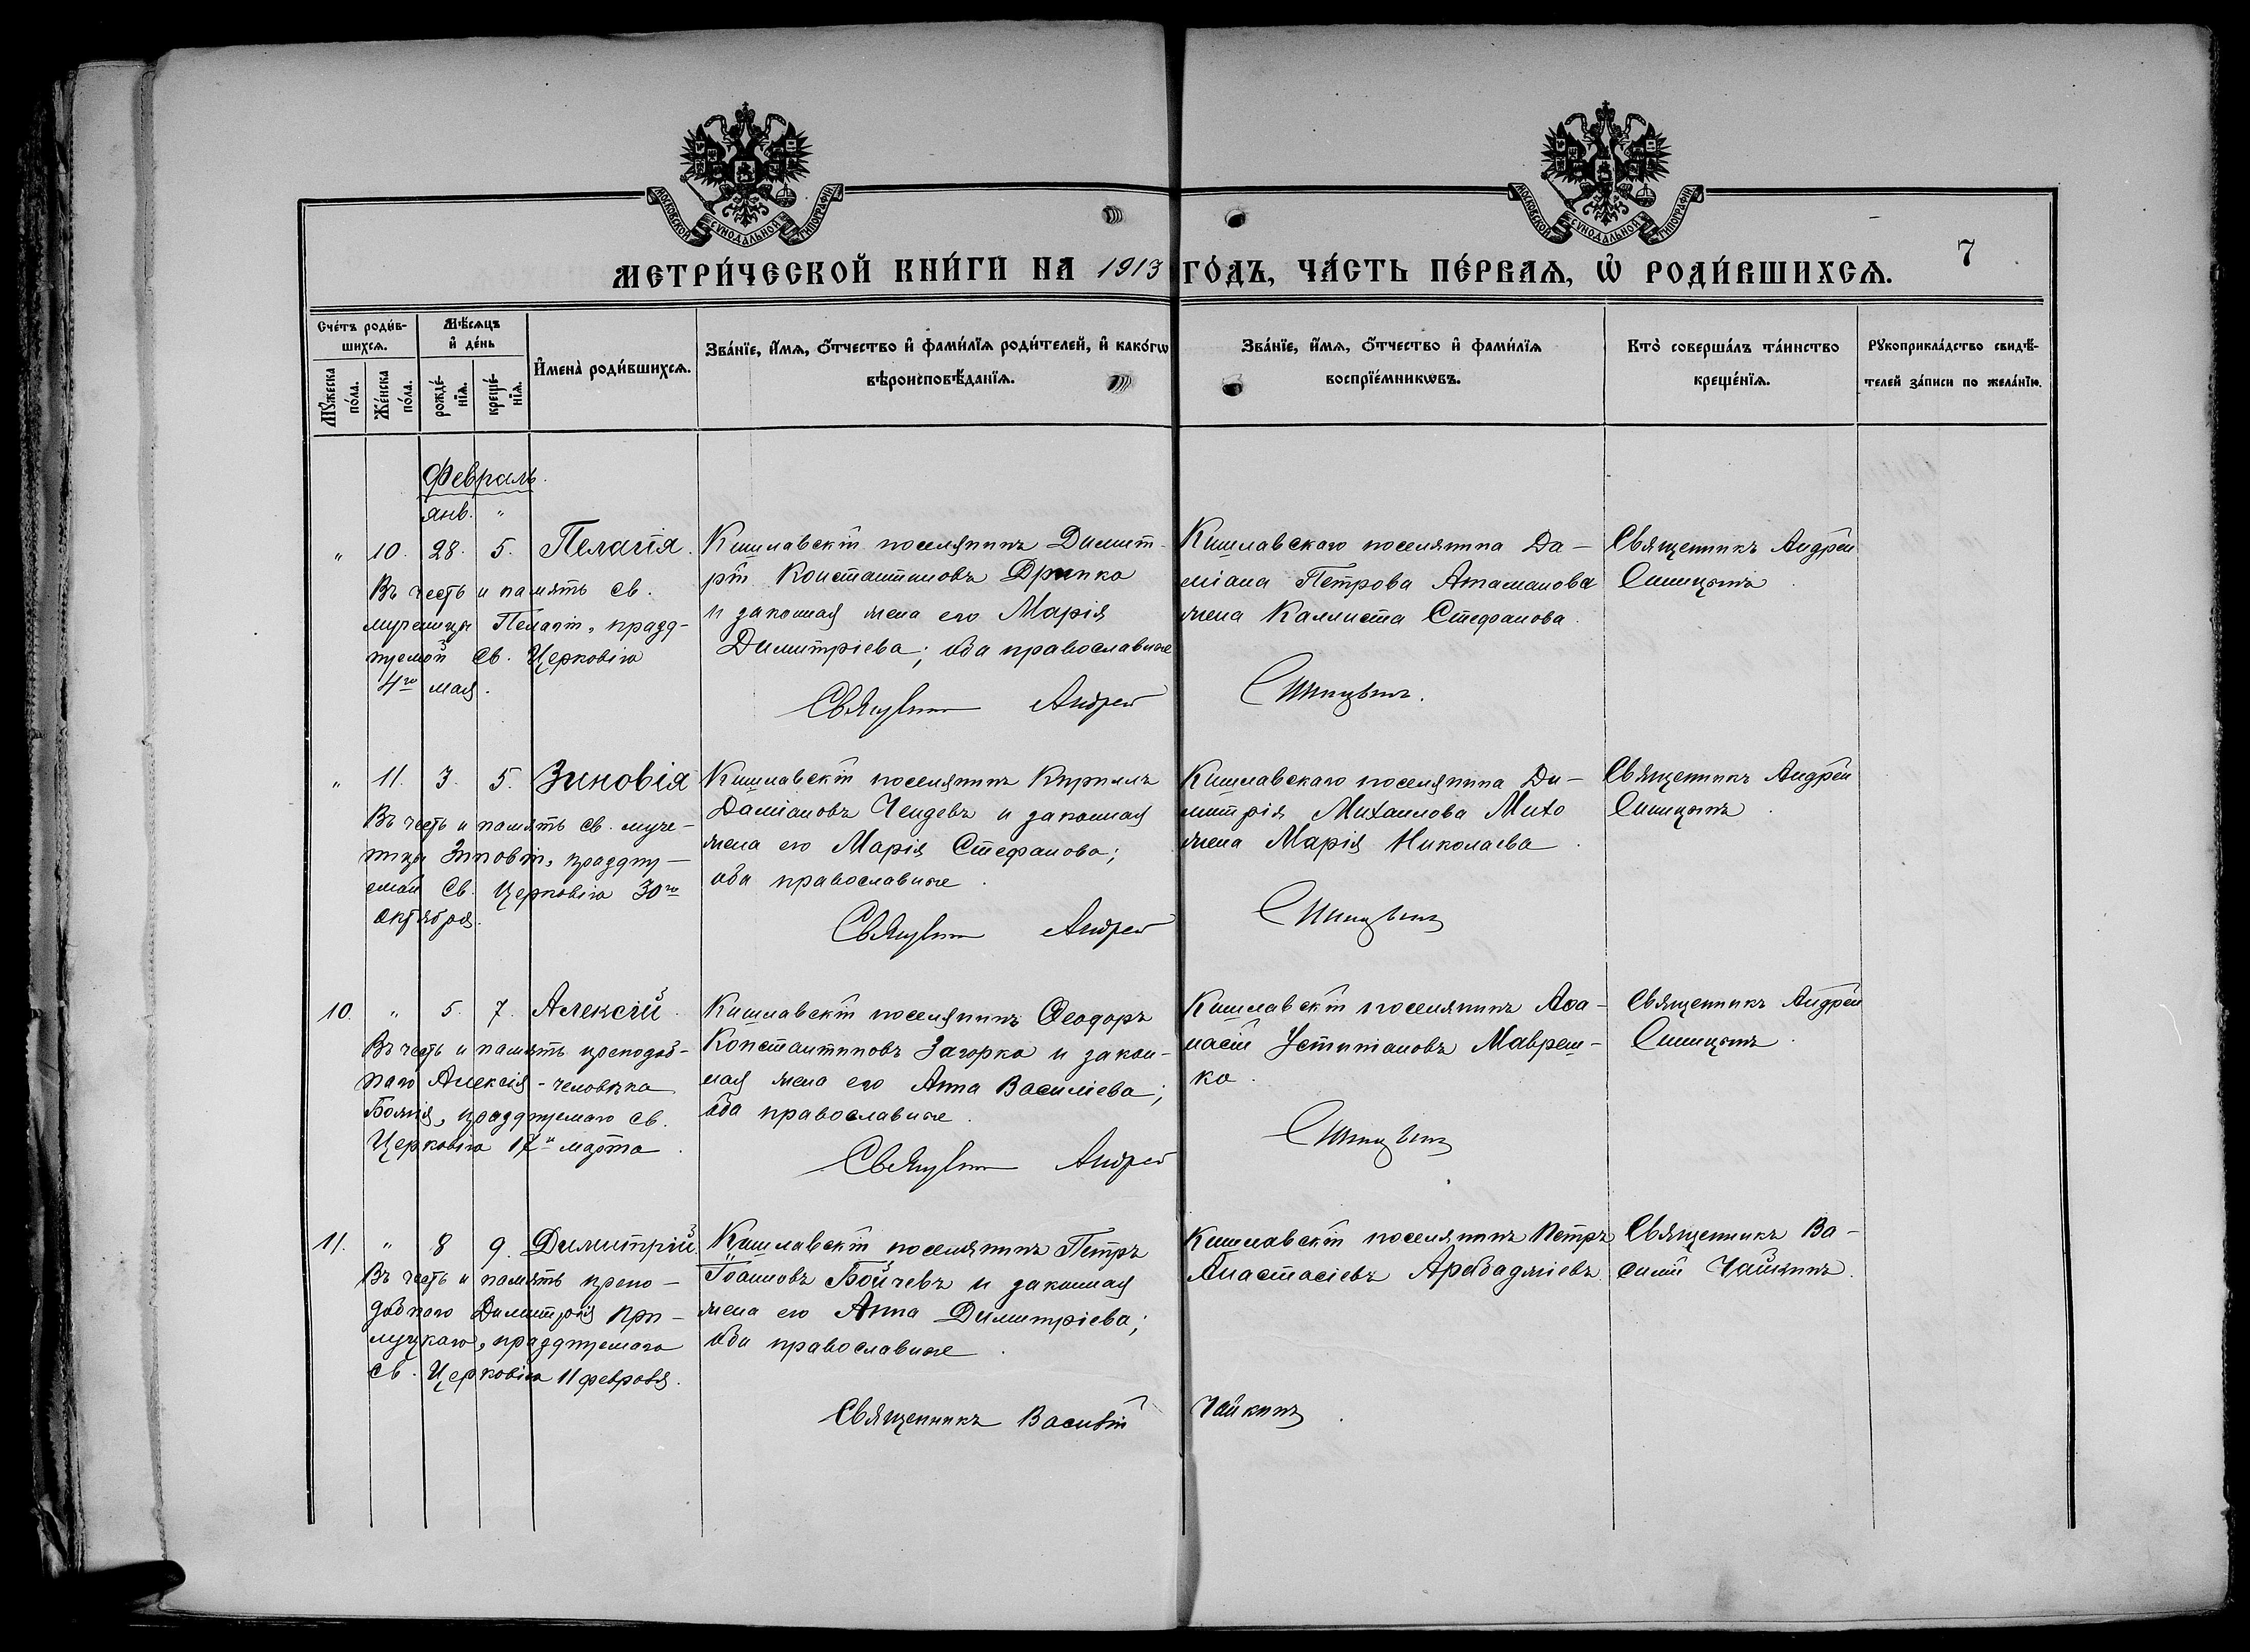 МОСКОВСКОЙ СУНОДАЛЬНОЙ ТИПОГРАФІИ
МОСКОВСКОЙ СУНОДАЛЬНОЙ ТИПОГРАФІИ
МЕТРИ́ЧЕСКОЙ КНИ́ГИ НА 1913 ГО́ДЪ, ЧА́СТЬ ПЕ́РВАѦ, Ѡ҆ РОДИ́ВШИХСѦ.
7
Сче́тъ роди́в-
шихсѧ.
Мꙋ́жеска по́ла.
Же́нска по́ла.
Мѣ́сѧцъ
и҆ де́нь
рожде́-
нїѧ.
креще́-
нїѧ.
И҆мена̀ роди́вшихсѧ.
Зва́нїе, и҆́мѧ, ѻ҆́тчество и҆ фами́лїѧ роди́телей, и҆ како́гѡ
вѣроисповѣ́данїѧ.
Зва́нїе, и҆́мѧ, ѻ҆́тчество и҆ фами́лїѧ
воспрїе́мникѡвъ.
Кто̀ соверша́лъ та́инство
креще́нїѧ.
Рꙋкоприкла́дство свидѣ́-
телей за́писи по жела́нїю.
Февраль.
Янв. "
" 10. 28. 5. Пелагія.
Въ честь и память св.
мученицы Пелагіи, праздн-
уемой св. Церковію
4го мая.
Кишлавскій поселянинъ Димит-
рій Константиновъ Дрипка
и законная жена его Марія
Димитріева; оба православные
Кишлавскаго поселянина Да-
міана Петрова Атаманова
жена Каллиста Стефанова.
Священникъ Андрей
Синицынъ.
Священникъ Андрей Синицынъ.
" 11. 3. 5. Зиновія
Въ честь и память св. муче-
ницы Зиновіи, праздну-
емой св. Церковію 30го
октября.
Кишлавскій поселянинъ Кириллъ
Даміановъ Чендевъ и законная
жена его Марія Стефанова;
оба православные.
Кишлавскаго поселянина Ди-
митрія Михаилова Михо
жена Марія Николаева.
Священникъ Андрей
Синицынъ.
Священникъ Андрей Синицынъ
10. " 5. 7. Алексій.
Въ честь и память преподоб-
наго Алексія-человѣка
Божія, празднуемаго св.
Церковію 17и марта.
Кишлавскій поселянинъ Ѳеодоръ
Константиновъ Загорко и закон-
ная жена его Анна Василіева;
оба православные.
Кишлавскій поселянинъ Аѳа-
насій Устиніановъ Мавреш-
ко.
Священникъ Андрей
Синицынъ.
Священникъ Андрей Синицынъ
11. " 8 9. Димитрій.
Въ честь и память препо-
добнаго Димитрія При-
луцкаго, празднуемаго
св. Церковію 11 февраля.
Кишлавскій поселянинъ Петръ
Іоанновъ Бойчевъ и законная
жена его Анна Димитріева;
оба православные.
Кишлавскій поселянинъ Петръ
Анастасіевъ Арабаджіевъ.
Священникъ Ва-
силій Чайкинъ.
Священникъ Василій Чайкинъ.